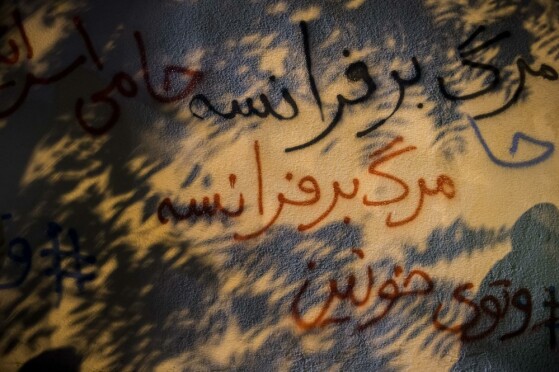 مرگ بر فرانسه حامی اسرا
حا
مرگ بر فرانسه
# و
# وتوی خونین